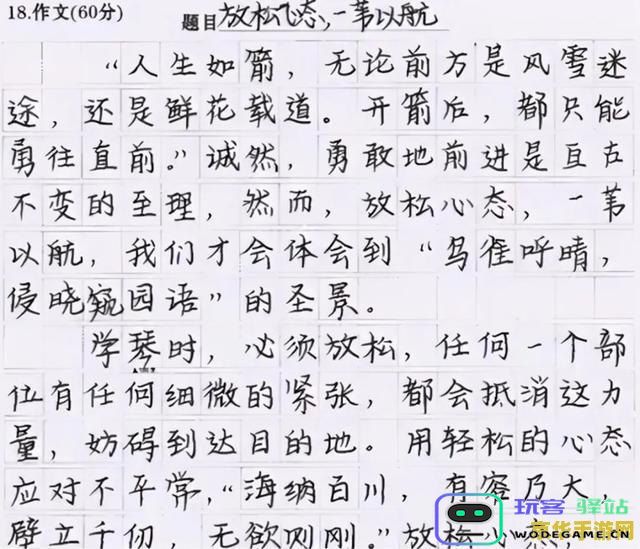 18.作文(60分)
题目 放松心态，一苇以航
“人生如箭，无论前方是风雪迷
途，还是鲜花载道。开箭后，都只能
勇往直前。”诚然，勇敢地前进是亘古
不变的至理，然而，放松心态，一苇
以航，我们才会体会到“鸟雀呼晴，
侵晓窥园语”的圣景。
学琴时，必须放松，任何一个部
位有任何细微的紧张，都会抵消这力
量，妨碍到达目的地。用轻松的心态
应对不平常，“海纳百川，有容乃大，
壁立千仞，无欲则刚。”放松心
玩客 驿站
京华手游网
WODEGAME.CN